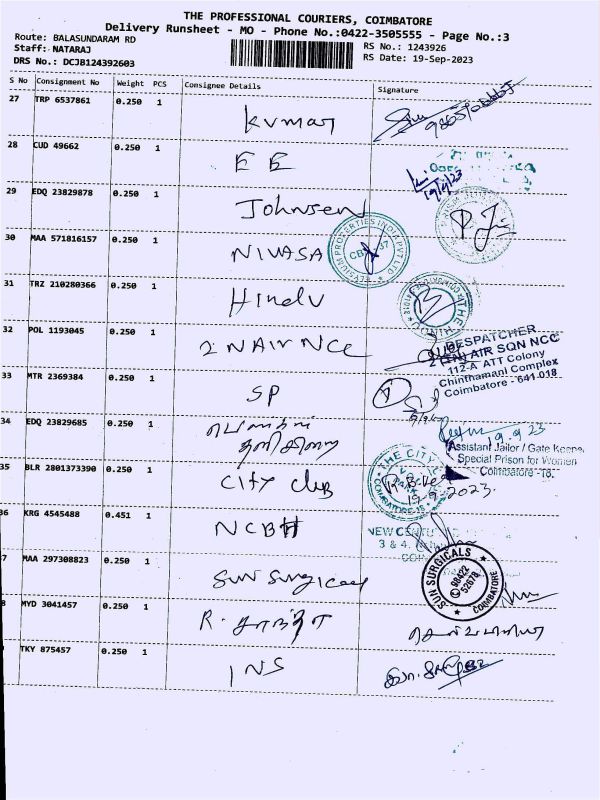 THE PROFESSIONAL COURIERS, COIMBATORE
Delivery Runsheet - MO - Phone No.:0422-3505555 - Page No.:3
Route: BALASUNDARAM RD
Staff: NATARAJ
DRS No.: DCJB124392603
RS No.: 1243926
RS Date: 19-Sep-2023
S No Consignment No Weight PCS Consignee Details Signature
27 TRP 6537861 0.250 1 Kumar
28 CUD 49662 0.250 1 E E
19/9/23
29 EDQ 23829878 0.250 1 Johnsen
30 MAA 571816157 0.250 1 NIVASA
ELYSIUM PROPERTIES INDIA PVT LTD
31 TRZ 210280366 0.250 1 Hindu
THE HINDU
32 POL 1193045 0.250 1 2 N AIR NCC
DESPATCHER
2 (TN) AIR SQN NCC
112-A ATT Colony
Chinthamani Complex
Coimbatore - 641 018
33 MTR 2369384 0.250 1 SP
34 EDQ 23829685 0.250 1
19.9.23
Assistant Jailor / Gate Keeper
Special Prison for Women
Coimbatore -18.
35 BLR 2801373390 0.250 1 City Club
THE CITY
COIMBATORE-18
19-9-2023
36 KRG 4545488 0.451 1 NCBH
NEW CENTU
3 & 4,
COI
7 MAA 297308823 0.250 1 Sun Surgical
SUN SURGICALS
98422
52678
COIMBATORE
8 MYD 3041457 0.250 1 R. சாந்தி
TKY 875457 0.250 1 INS